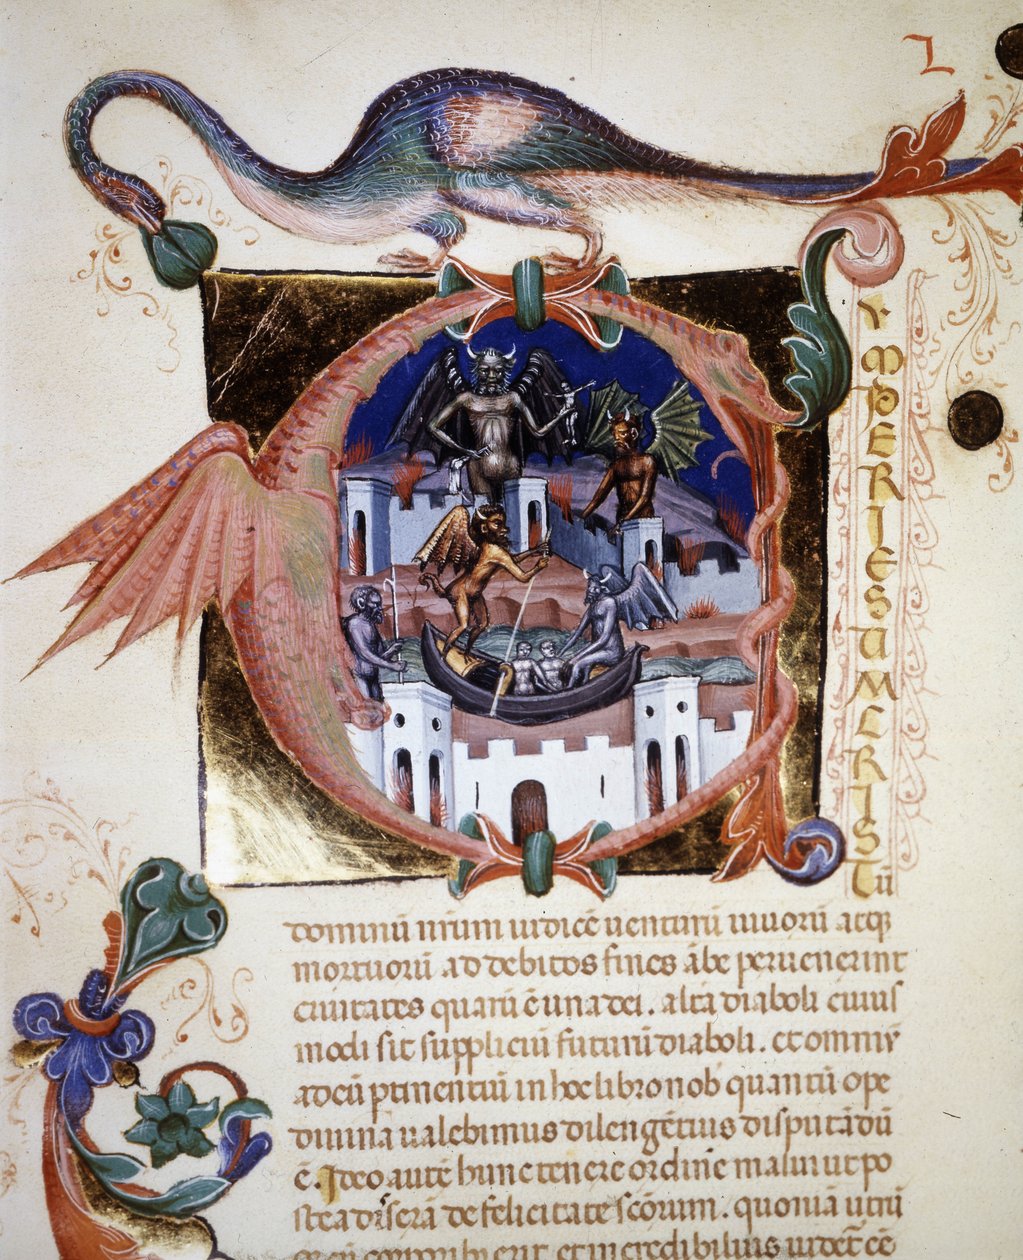 L
UMPERIESUMCRISTū
dominū nr̄um iudicē uenturū uiuorū atq;
mortuorū ad debitos fines ābe peruenerint
ciuitates quarū ē una dei. altā diaboli cuius
modi sit suppliciū futurū diaboli. et omniū
ad eū ptinentiū in hoc libro nob quantū ope
diuina ualebimus dilengētius disputādū
ē. Ideo autē hunc tenere ordinē malui ut po
stea diserā de felicitate sc̄orum. quoniā utrū
corporib; erit et incredibilius uidet̄ eē